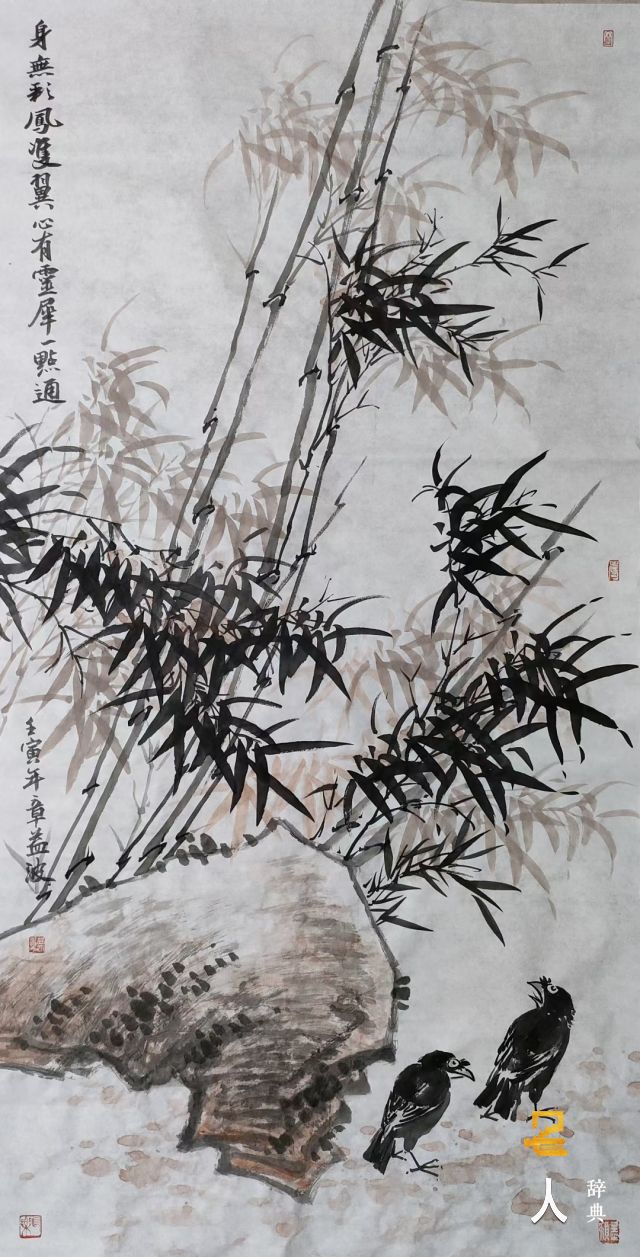 身無彩鳳雙翼心有靈犀一點通
壬寅年章益波
名人
辞典